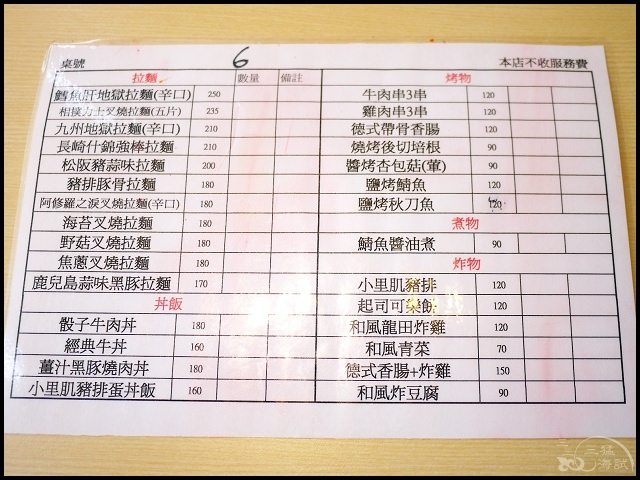 桌號 6 本店不收服務費
拉麵 數量 備註
鱈魚肝地獄拉麵(辛口) 250
相撲力士叉燒拉麵(五片) 235
九州地獄拉麵(辛口) 210
長崎什錦強棒拉麵 210
松阪豬蒜味拉麵 200
豬排豚骨拉麵 180
阿修羅之淚叉燒拉麵(辛口) 180
海苔叉燒拉麵 180
野菇叉燒拉麵 180
焦蔥叉燒拉麵 180
鹿兒島蒜味黑豚拉麵 170
丼飯
骰子牛肉丼 180
經典牛丼 160
薑汁黑豚燒肉丼 180
小里肌豬排蛋丼飯 160
烤物
牛肉串3串 120
雞肉串3串 120
德式帶骨香腸 120
燒烤後切培根 90
醬烤杏包菇(葷) 90
鹽烤鯖魚 120
鹽烤秋刀魚 120
煮物
鯖魚醬油煮 90
炸物
小里肌豬排 120
起司可樂餅 120
和風龍田炸雞 120
和風青菜 70
德式香腸+炸雞 150
和風炸豆腐 90
三猛
海試